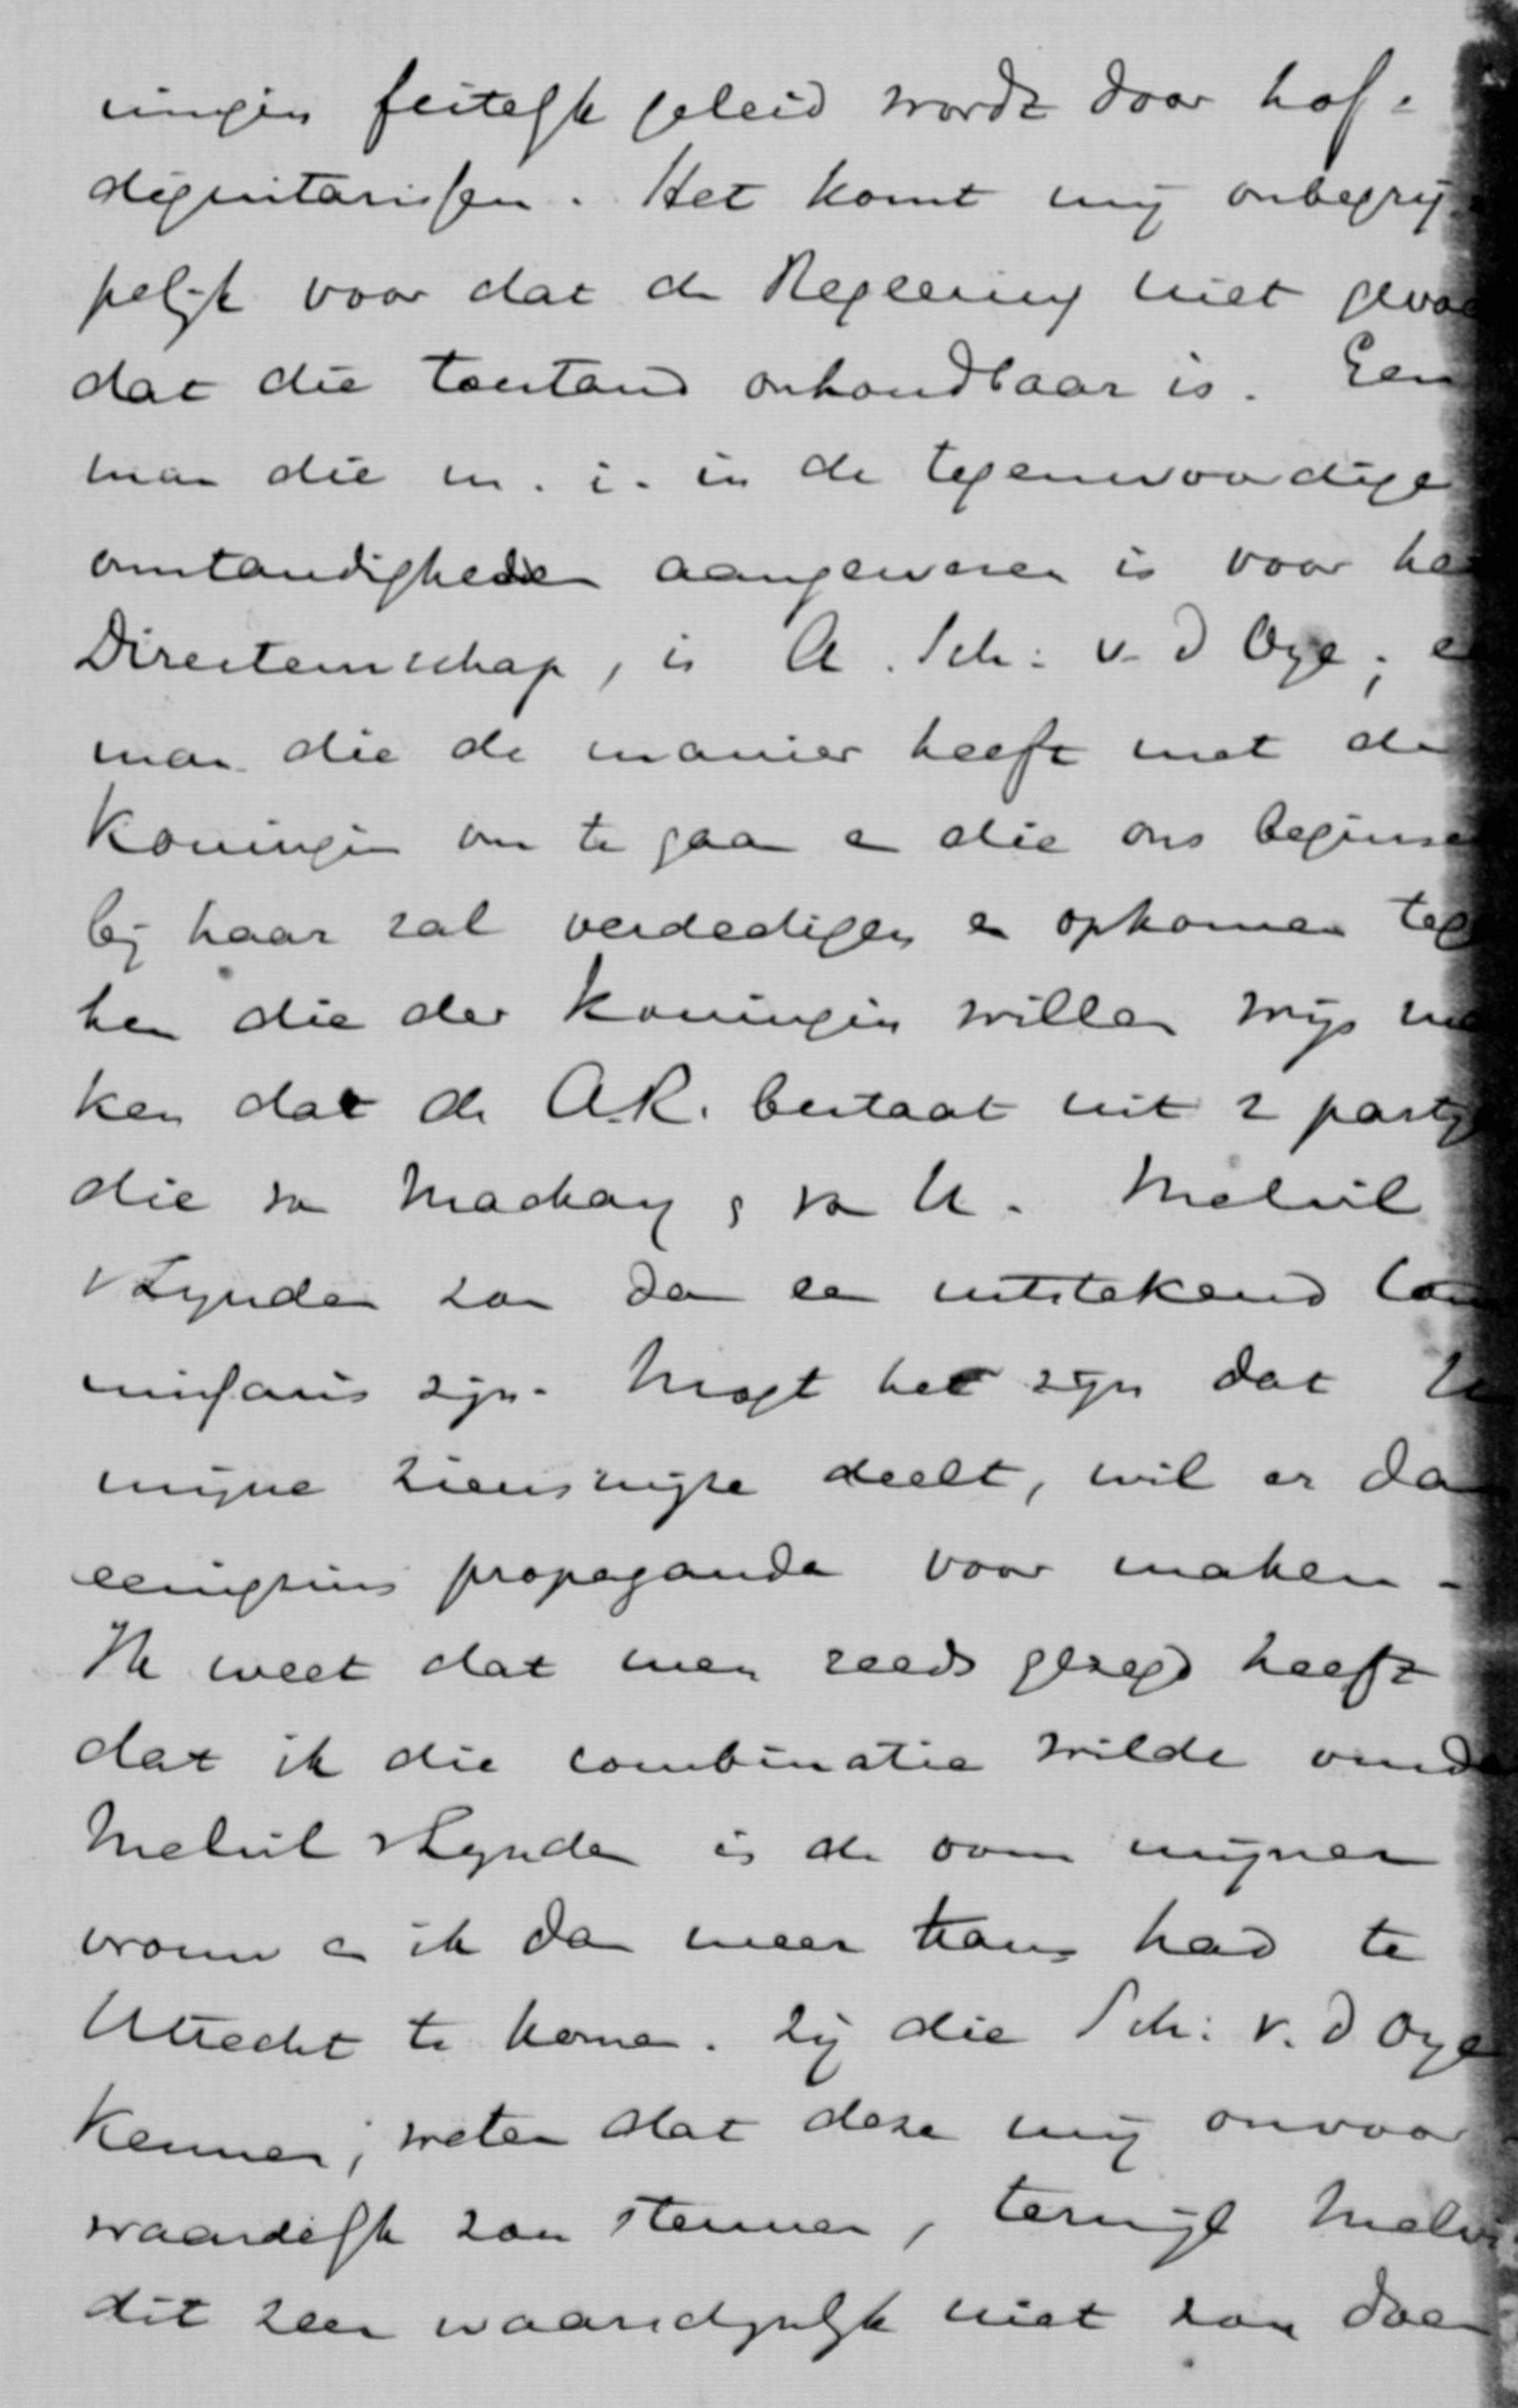 ningen feitelijk geleid wordt door hof-
dignitarissen. Het komt mij onbegrij-
pelijk voor dat de Regeering niet gevoe
dat die toestand onhoudbaar is. Een
man die m. i. in de tegenwoordige
omstandigheden aangewezen is voor he
Directeurschap, is A. Sch: v. d Oye; e
man die de manier heeft met de
Koningin om te gaan en die ons beginse
bij haar zal verdedigen en opkomen teg
hen die der Koningin willen wijs ma
ken dat de A.R. bestaat uit 2 partij
die van Mackay & van U. Melvil
v Lynden zou dan een uitstekend Com
missaris zijn. Mogt het zijn dat U
mijne zienswijze deelt, wil er dan
eenigzins propaganda voor maken.
Ik weet dat men reeds gezegd heeft
dat ik die combinatie wilde omd
Melvil v Lynden is de oom mijner
vrouw en ik dan meer kans had te
Utrecht te komen. Zij die Sch: v. d Oye
kennen, weten dat deze mij onvoor
waardelijk zou steunen, terwijl Melvi
dit zeer waarschijnlijk niet zou doen